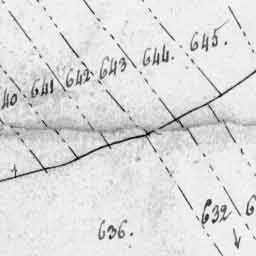 645.
644.
643
642
641
40
632
6
636.